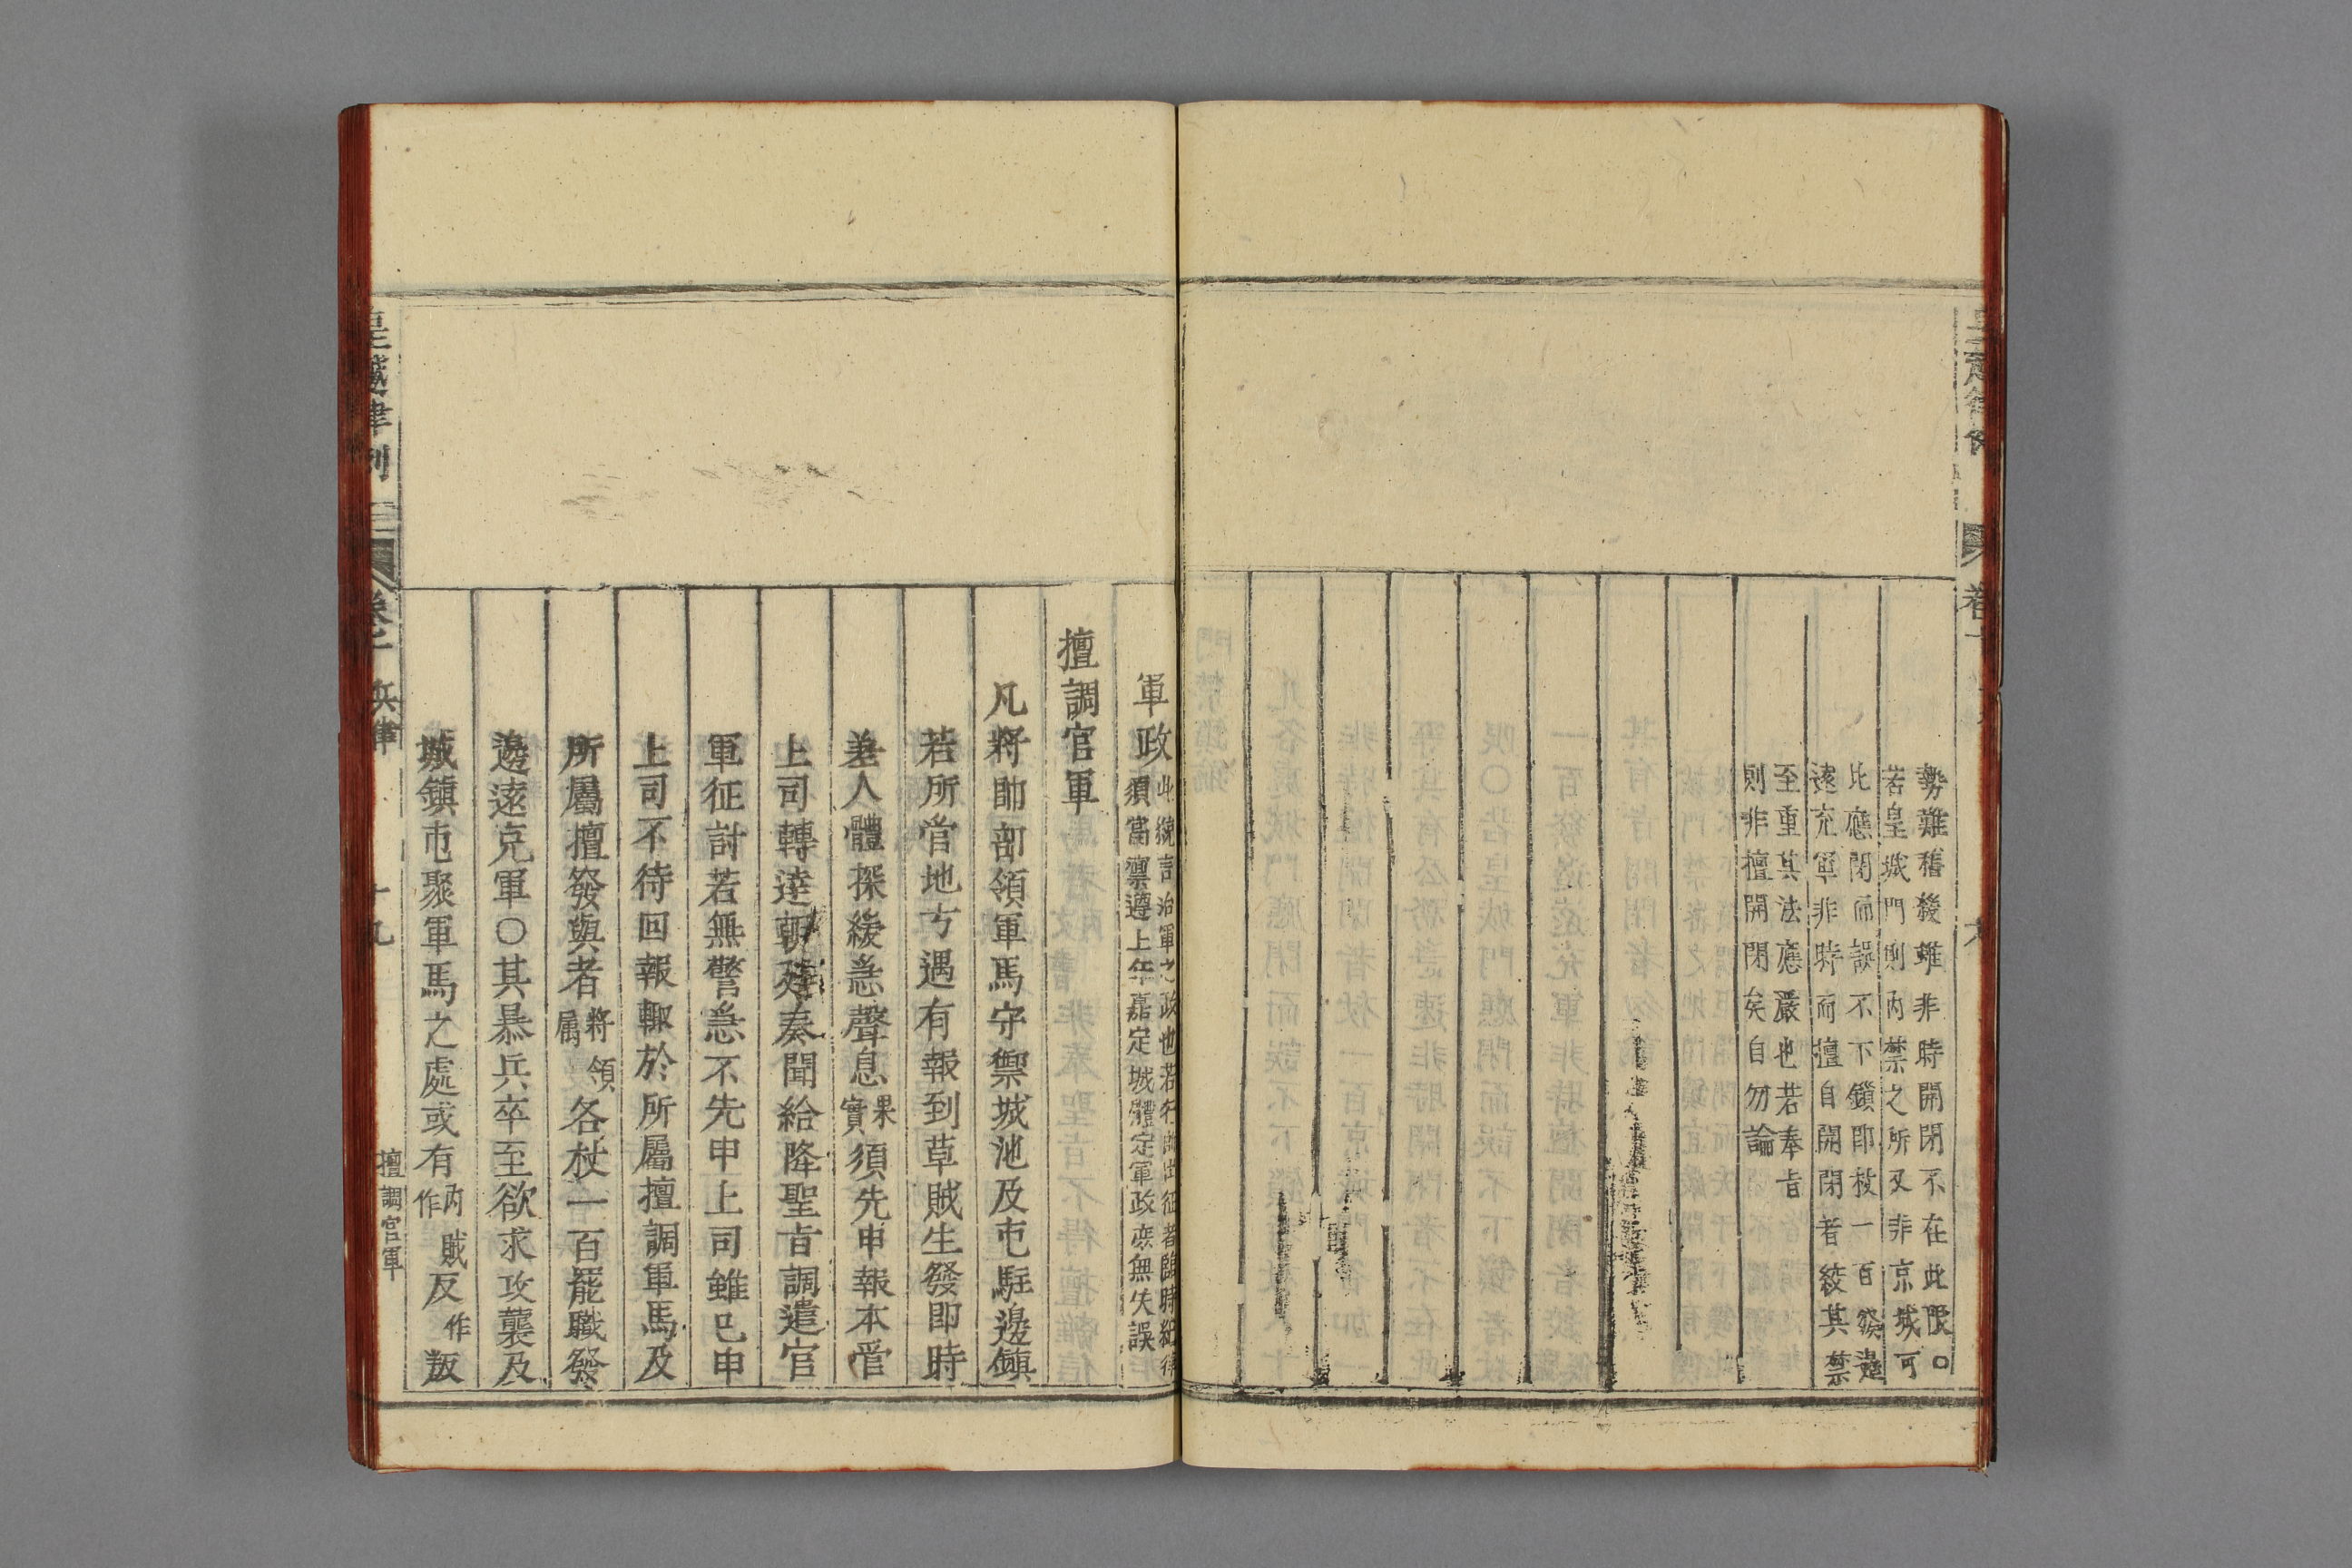 勢難稽緩雖非時開閉不在此限○
若皇城門則内禁之所又非京城可
比應閉而誤不下鎖即杖一百發邊
遠充軍非時而擅自開閉者絞其禁
至重其法應嚴也若奉旨
則非擅開閉矣自勿論
軍政
此統言治軍之政也若行師出征者臨時紀律
須當凛遵上年嘉定城體定軍政庶無失誤
擅調官軍
凡將帥部領軍馬守禦城池及屯駐邊鎮
若所管地方遇有報到草賊生發即時
差人體探緩急聲息果實須先申報本管
上司轉達朝廷奏聞給降聖旨調遣官
軍征討若無警急不先申上司雖已申
上司不待回報輒於所屬擅調軍馬及
所屬擅發與者將領属各杖一百罷職發
邊遠充軍○其暴兵卒至欲求攻襲及
城鎮屯聚軍馬之處或有内賊作反作叛
皇越律例
兵律
十九
擅調官軍